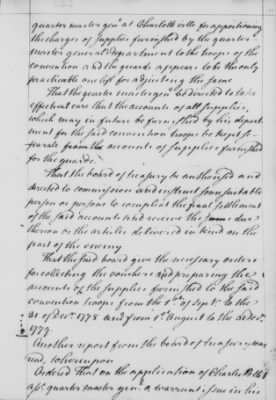 quarter master genl. at Charlotteville for apportioning
the charges of supplies furnished by the quarter
master general's department to the troops of the
convention and the guards appears to be the only
practicable one left for adjusting the same
That the quarter master genl. be directed to take
effectual care that the accounts of all supplies,
which may in future be furnished by his depart
ment for the said convention troops be kept se-
parate from the accounts of supplies furnished
for the guards.
That the board of treasury be authorised and
directed to commission and instruct some suitable
person or persons to compleat the final settlement
of the said accounts and receive the sums due
thereon or the articles delivered in kind on the
part of the enemy
That the said board give the necessary orders
for collecting the vouchers and preparing the
accounts of the supplies furnished to the said
convention troops from the of Septr. to the
31 of Decr. 1778 and from 1st August to the Decr.
1779.
Another report from the board of treasury was
read, whereupon
Ordered That on the application of Charles Pettit
asst. quarter master genl. a warrant issue in his